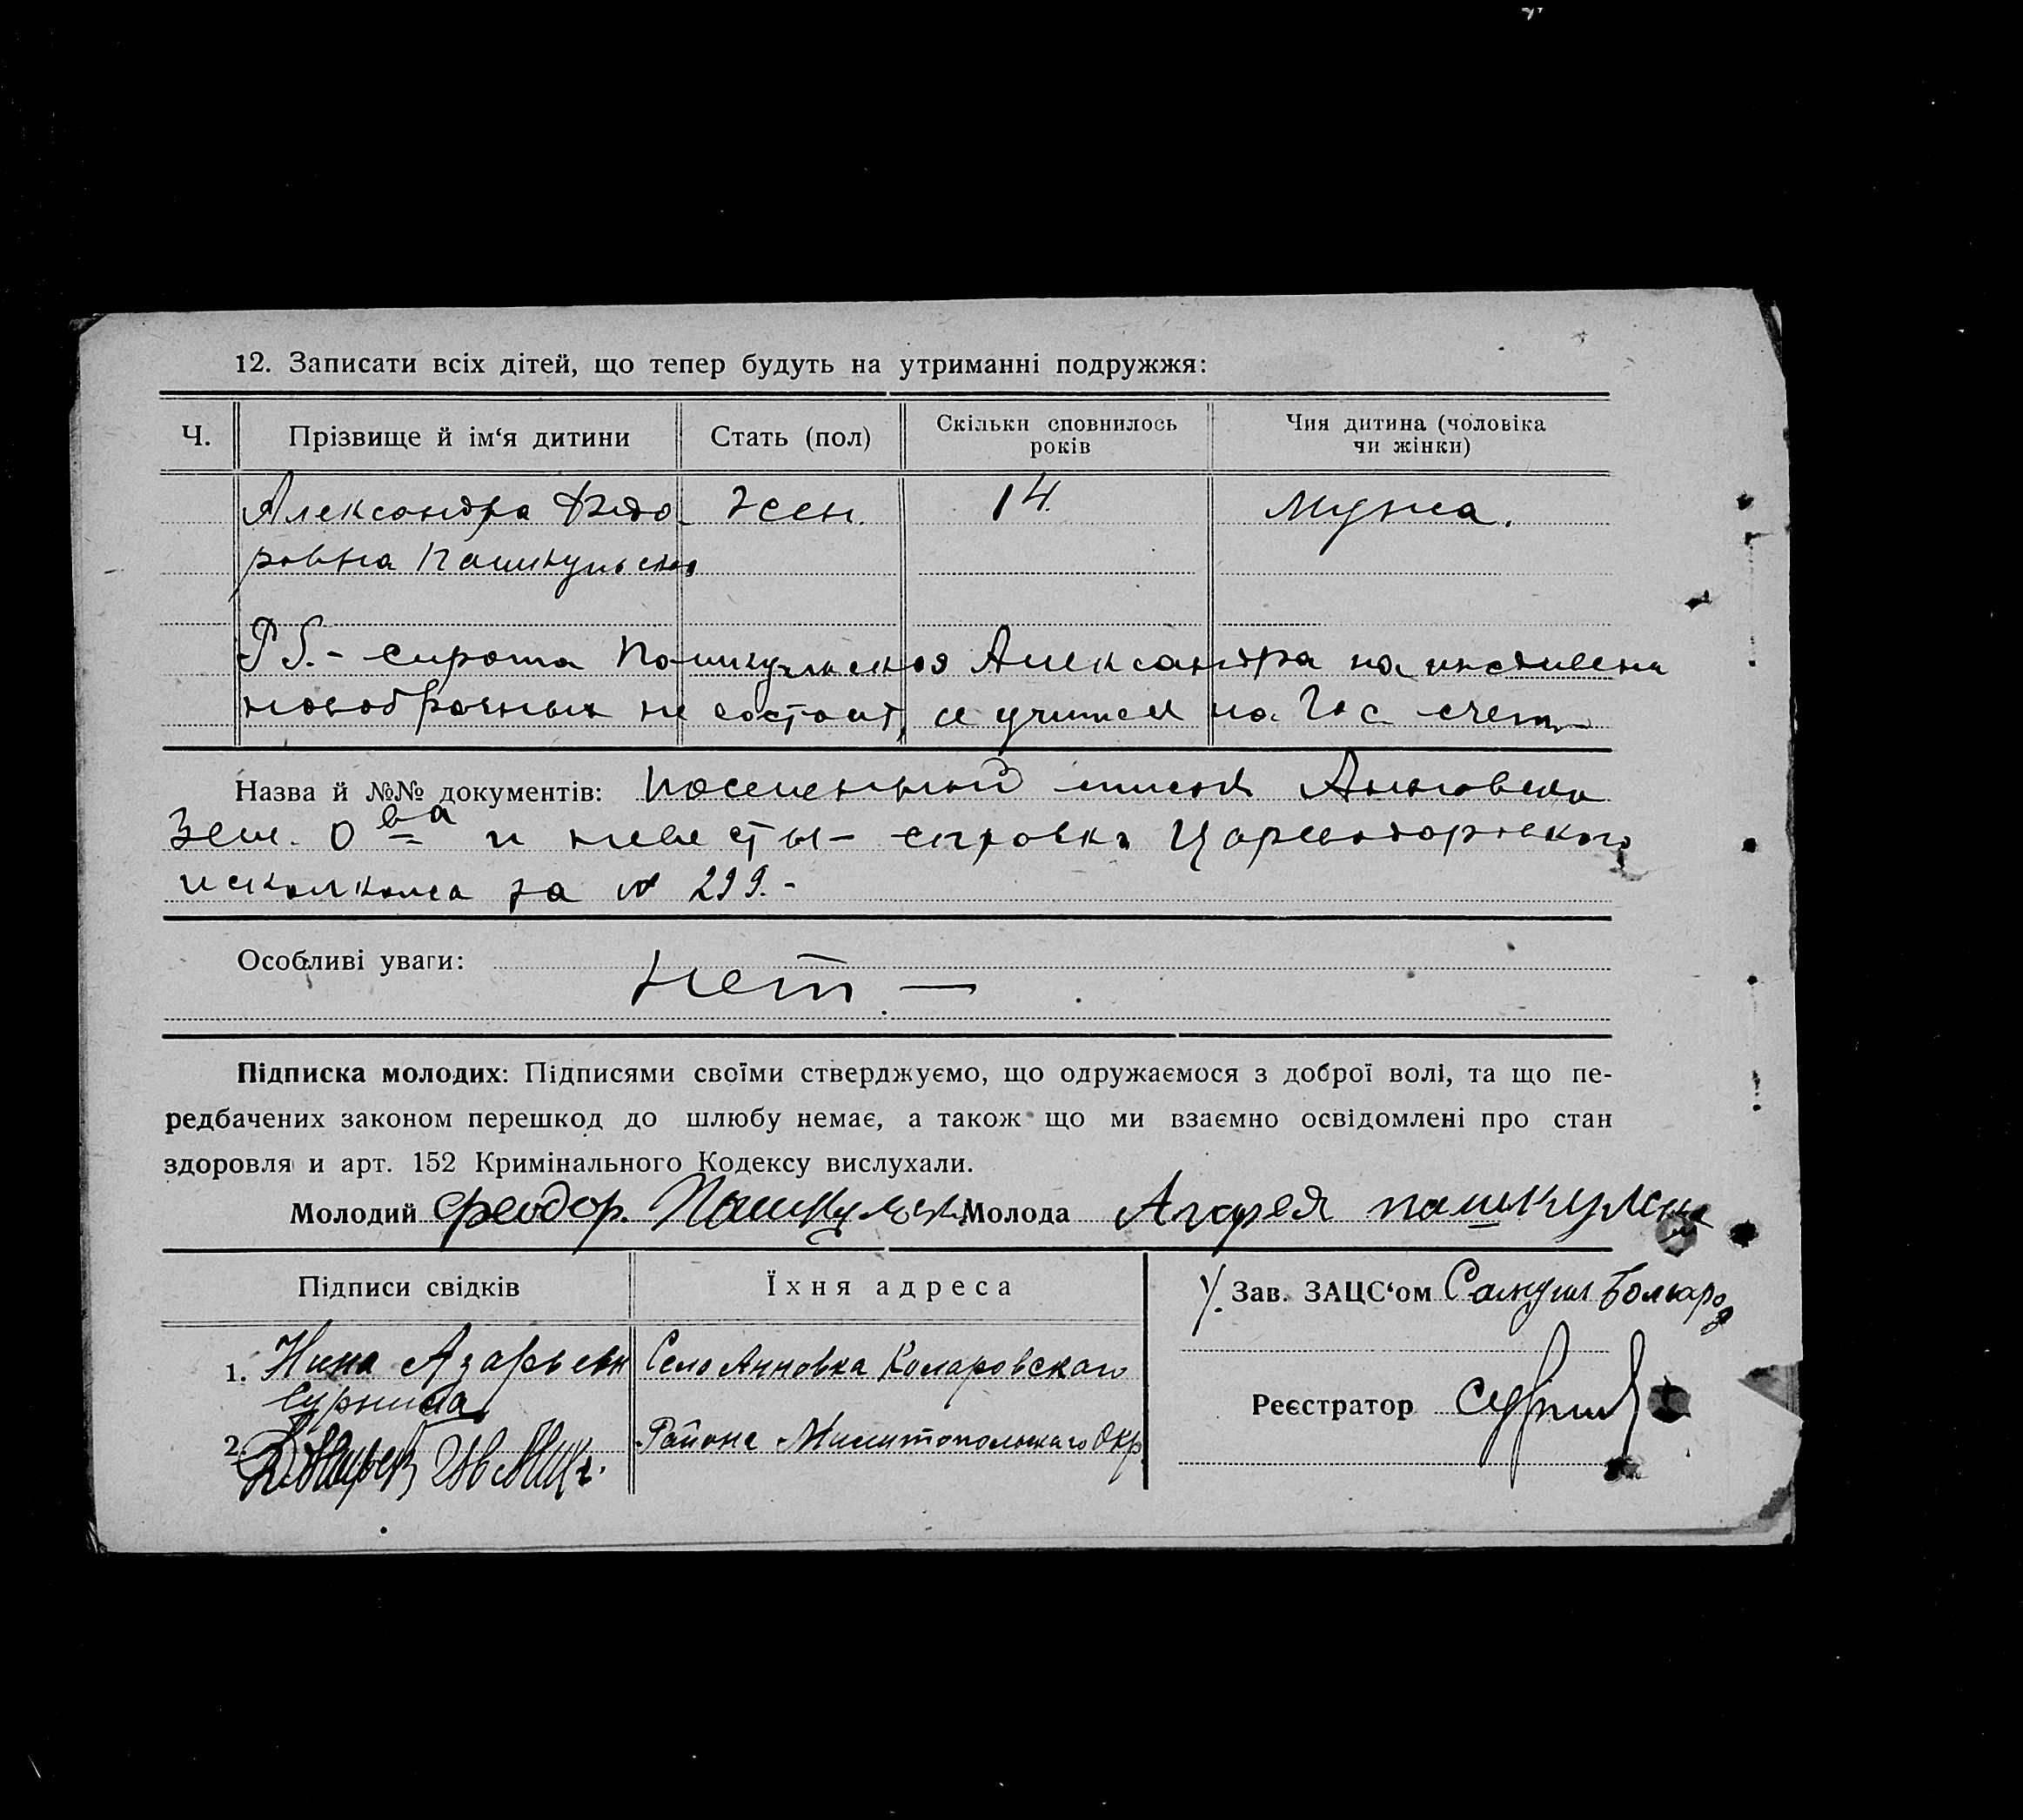 12. Записати всіх дітей, що тепер будуть на утриманні подружжя:
Ч. Прізвище й ім‘я дитини Стать (пол) Скільки сповнилось років Чия дитина (чоловіка чи жінки)
Александра Федо- Жен. 14. Мужа.
ровна
P.S. – сирота Александра на
новобрачных не состоит, и учится на счет
Назва й №№ документів: Посемейный список
Зем. О-ва и невесты – справка
исполкома за № 299. –
Особливі уваги:
Нет. —
Підписка молодих: Підписями своїми стверджуємо, що одружаємося з доброї волі, та що пе-
редбачених законом перешкод до шлюбу немає, а також що ми взаємно освідомлені про стан
здоровля и арт. 152 Кримінального Кодексу вислухали.
Молодий Феодор. Молода Агафея
Підписи свідків Їхня адреса Зав. ЗАЦС‘ом
1. Нина Село Анновка Комаровскаго
Реєстратор
2. Района Милитопольскаго Окр